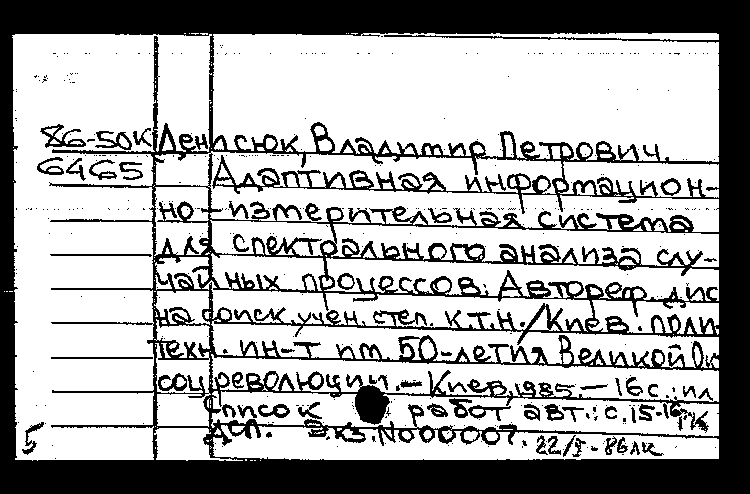 86-50К Денисюк, Владимир Петрович.
6465 Адаптивная информацион-
но-измерительная система
для спектрального анализа слу-
чайных процессов: Автореф. дис
на соиск. учен. степ. к.т.н. / Киев. поли-
техн. ин-т им. 50-летия Великой Ок
соц революции. - Киев, 1985. - 16 с.: ил
Список работ авт.: с. 15-16
5 Дсп. Экз. N000007. 22/I-86лк